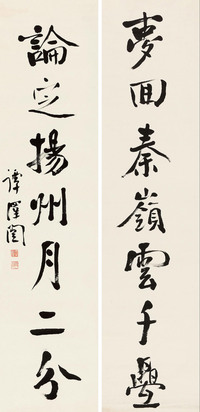 夢回秦嶺雲千疊
論定揚州月二分
譚澤闓